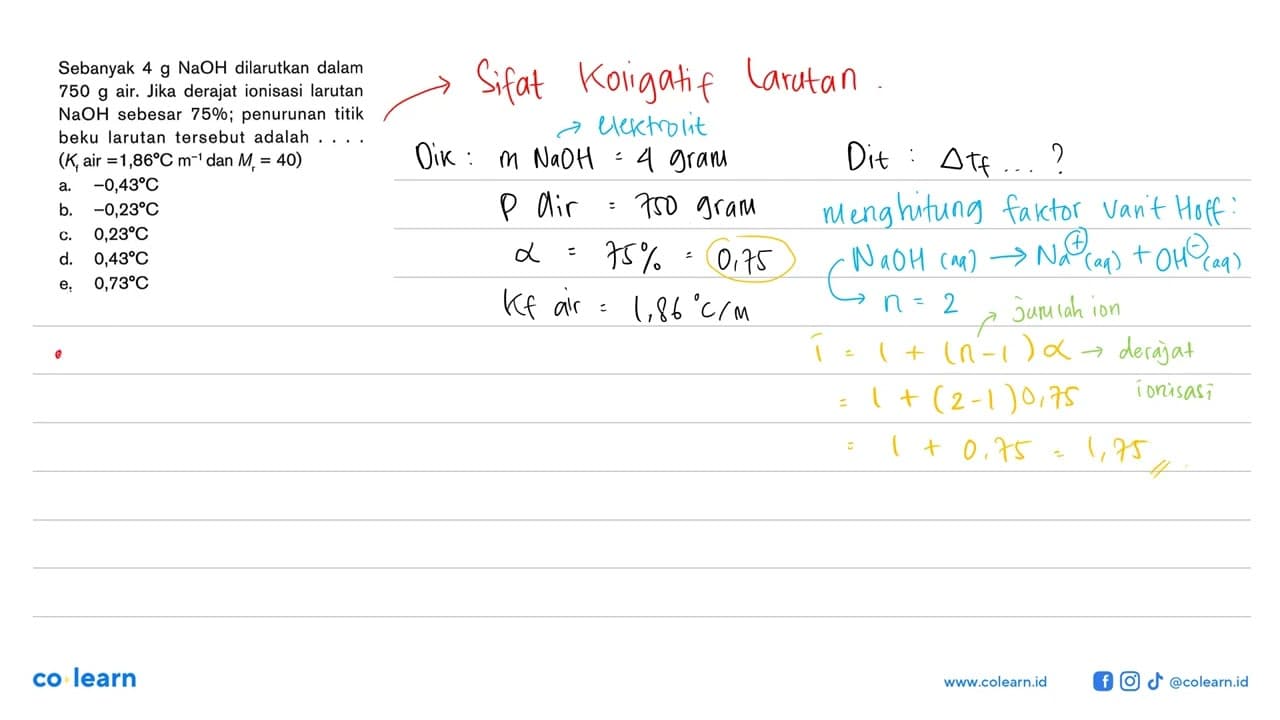 Sebanyak 4 g NaOH dilarutkan dalam
750 g air. Jika derajat ionisasi larutan
NaOH sebesar 75%; penurunan titik
beku larutan tersebut adalah . . . .
(K_f air =1,86°C m⁻¹ dan M_r = 40)
a. −0,43°C
b. −0,23°C
c. 0,23°C
d. 0,43°C
e. 0,73°C
→ Sifat Koligatif Larutan.
→ elektrolit
Dik : m NaOH = 4 gram
P air = 750 gram
α = 75% = 0,75
Kf air = 1,86 °C/m
Dit : ΔTf ... ?
menghitung faktor van't Hoff :
NaOH (aq) → Na⁺ (aq) + OH⁻ (aq)
→ n = 2
→ jumlah ion
i = 1 + (n-1) α → derajat
ionisasi
= 1 + (2-1) 0,75
= 1 + 0,75 = 1,75 //
co learn
www.colearn.id
@colearn.id